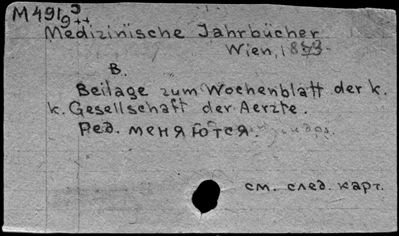 M 491 9 ++
Medizinische Jahrbücher
Wien, 18
B.
Beilage zum Wochenblatt der k.
k. Gesellschaft der Aerzte.
Ред. меняются.
см. след. карт.